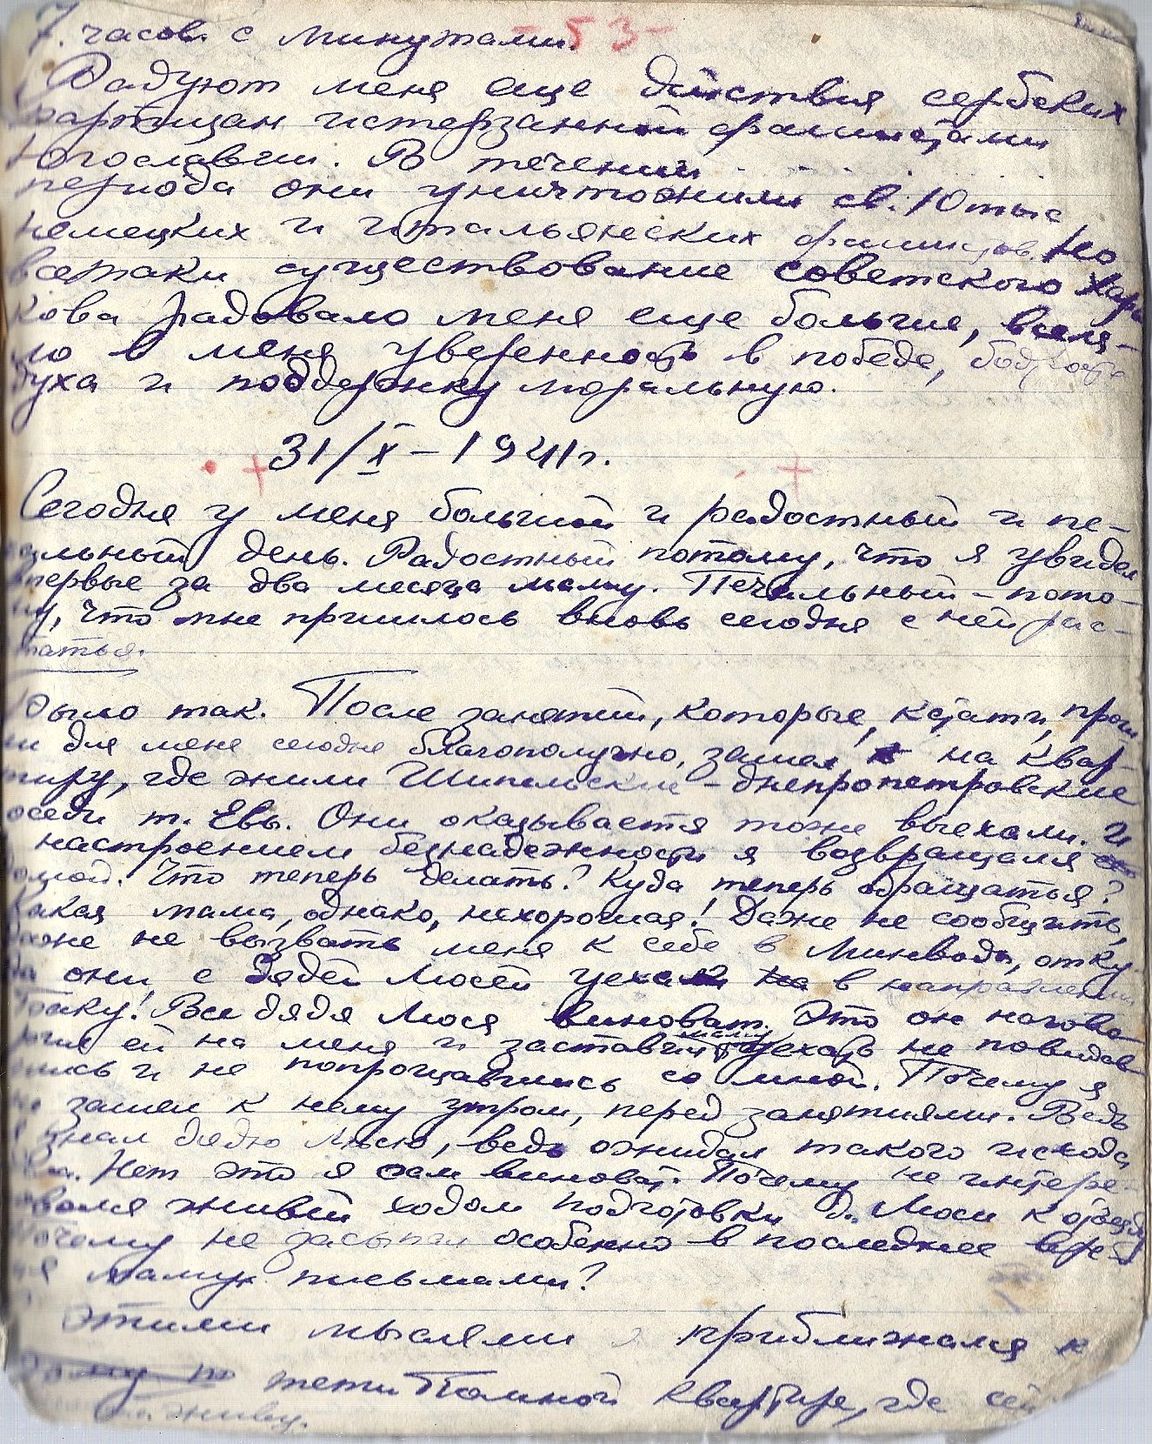 7. часов. с минутами. - 53 -
Радуют меня еще действия сербских
партизан истерзанной фашистами
Югославии. В течении ...
периода они уничтожили св. 10 тыс
немецких и итальянских фашистов. Но
всетаки существование советского Харь
кова радовало меня еще больше, вселя-
ло в меня уверенность в победе, бодрость
духа и поддержку моральную.
31/X – 1941 г.
Сегодня у меня большой и радостный и пе-
чальный день. Радостный потому, что я увидел
впервые за два месяца маму. Печальный – пото-
му, что мне пришлось вновь сегодня с ней рас-
статься.
Было так. После занятий, которые, кстати, прош
ли для меня сегодня благополучно, зашел на квар-
тиру, где жили Шипельские – днепропетровские
соседи т. Евы. Они оказывается тоже выехали. И
настроением безнадежности я возвращался
домой. Что теперь делать? Куда теперь обращаться?
Какая мама, однако, нехорошая! Даже не сообщить,
даже не вызвать меня к себе в Минводы, отку-
да они с дядей Люсей уехали в направлении
Баку! Все дядя Люся виноват. Это он нагово
рил ей на меня и заставил маму уехать не повидав
шись и не попрощавшись со мной. Почему я
не зашел к нему утром, перед занятиями. Ведь
я знал дядю Люсю, ведь ожидал такого исхода
Нет это я сам виноват. Почему не интере-
совался живей ходом подготовки д. Люси к отъезду
Почему не засыпал особенно в последнее вре-
мя маму письмами?
С этими мыслями я приближался к
тети Тамарной квартире, где сей
живу.